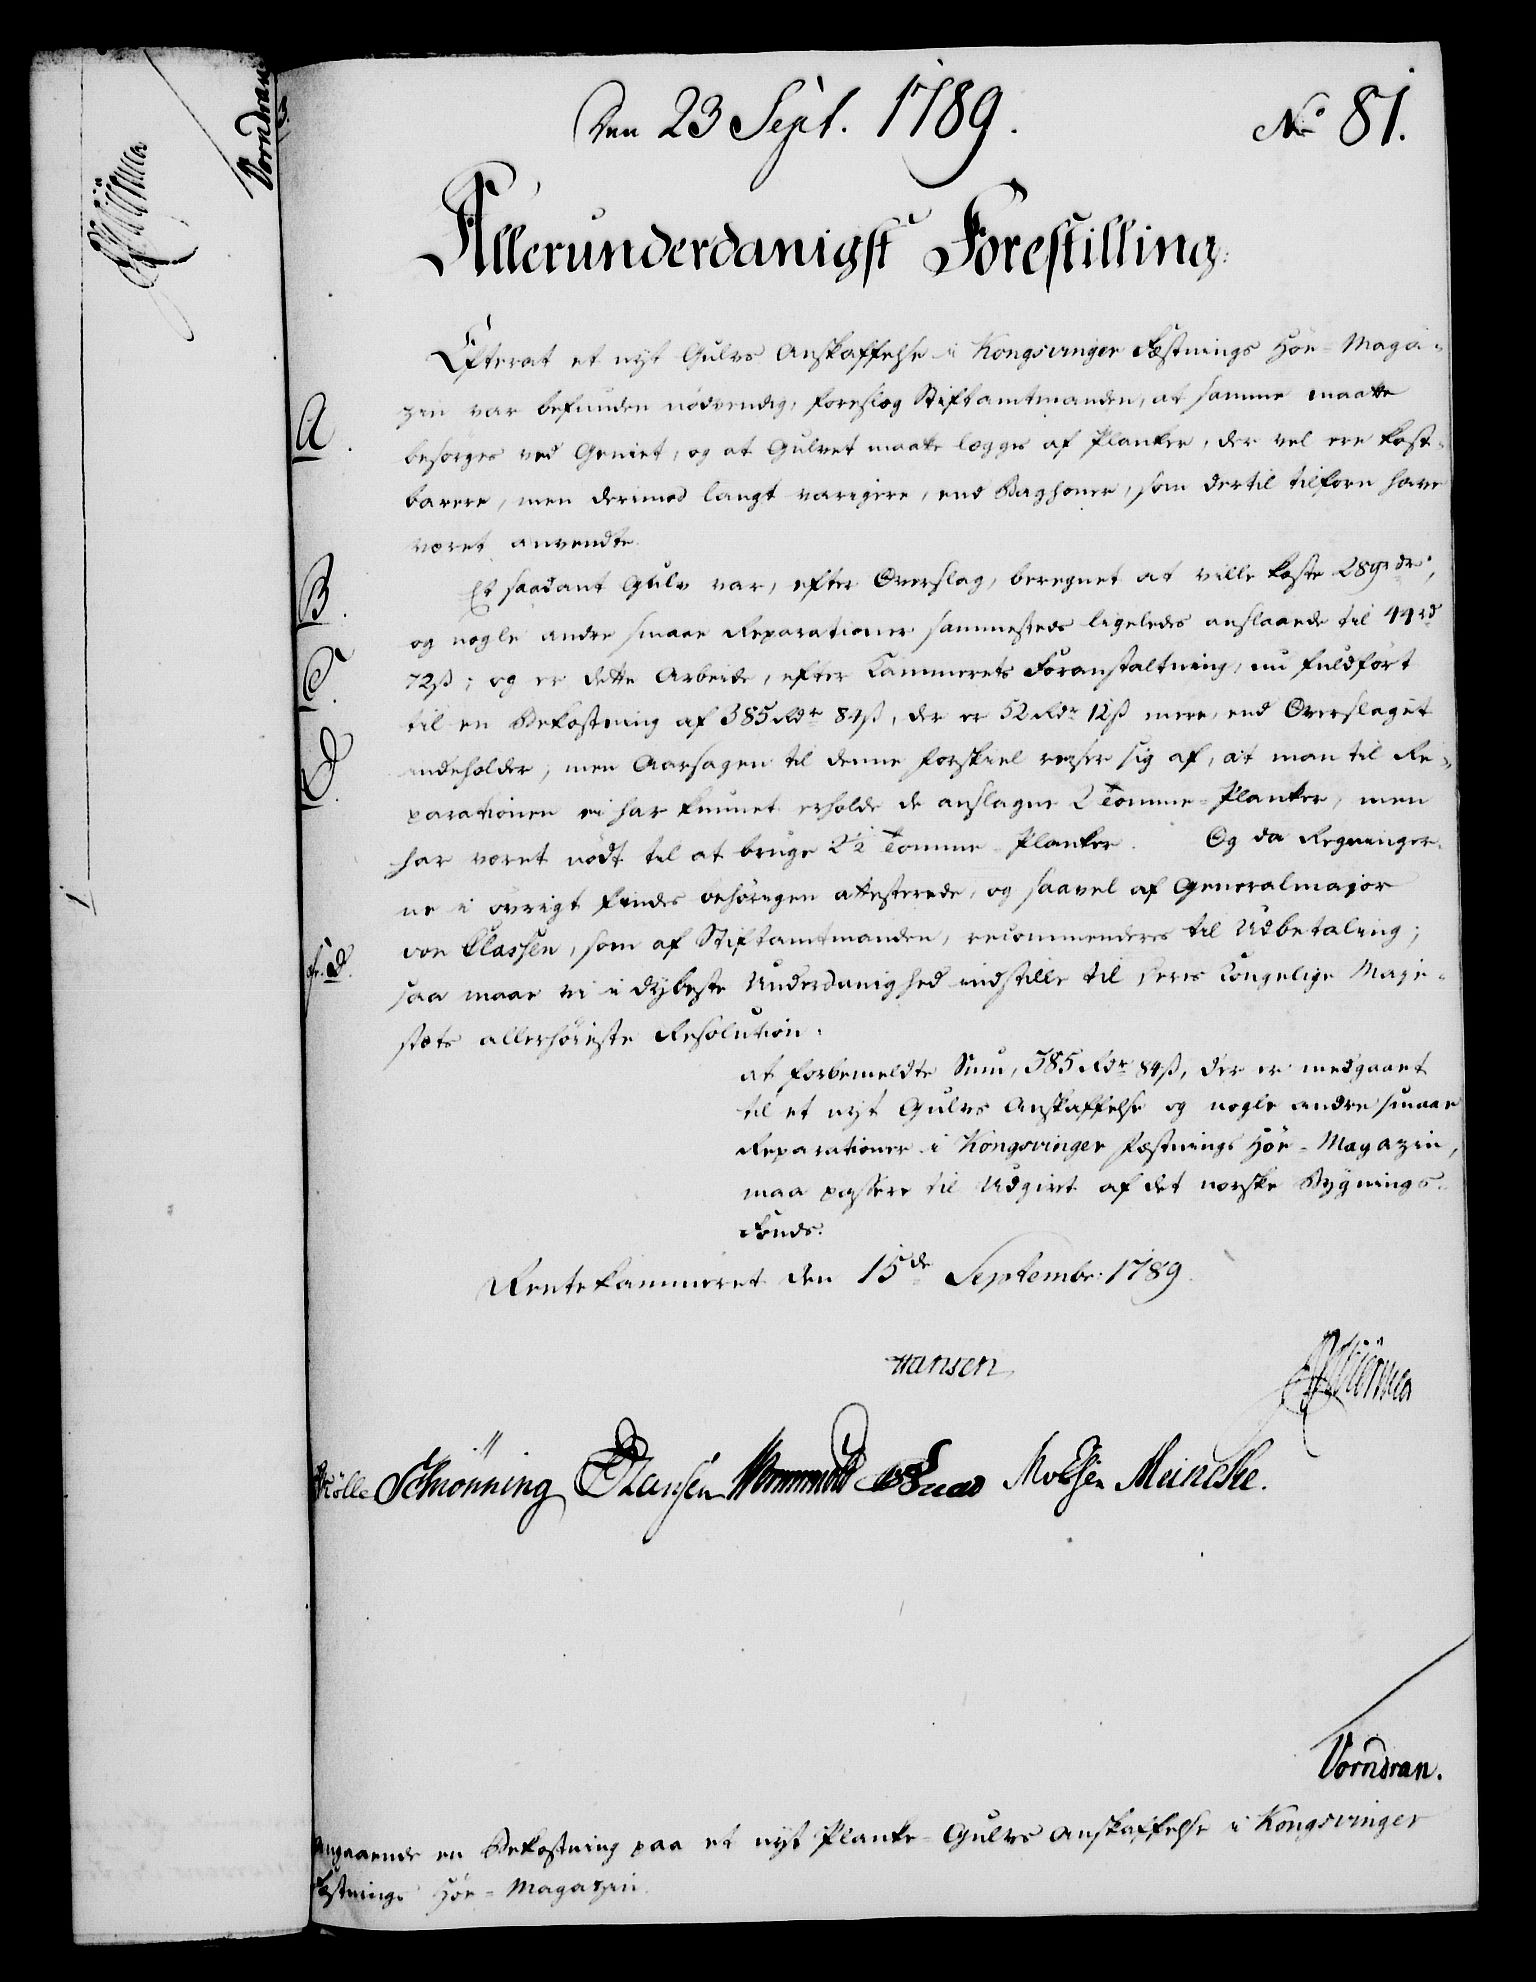 Den 23 Sept. 1789.
No 81.
Allerunderdanigst Forestilling:
Efterat et nyt Gulvs Anskaffelse i Kongsvinger Fæstnings Höe-Maga-
zin var befunden nödvendig, foreslog Stiftamtmanden, at samme maatte
A.
besørges ved Geniet, og at Gulvet maatte lægges af Planker, der vel ere kost-
barere, men derimod langt varigere, end Baghoner, som dertil tilforn have
været anvendte.
B.
Et saadant Gulv var, efter Overslag, beregnet at ville koste 289 rdr,
og nogle andre smaae Reparationer sammesteds ligeledes anslaaede til 44 rd
C.
72 ß; og er dette Arbeide, efter Kammerets Foranstaltning, nu fuldfört
til en Bekostning af 385 Rdr 84 ß, der er 52 Rdr 12 ß mere, end Overslaget
D.
indeholder; men Aarsagen til denne Forskiel reyser sig af, at man til Re-
parationen ei har kunnet erholde de anslagne 2 Tomme-Planker, men
har været nödt til at bruge 2½ Tomme-Planker. Og da Regninger-
ne i övrigt findes behörigen attesterede, og saavel af Generalmajor
von Classen, som af Stiftamtmanden, recommenderes til Udbetaling;
fr. D.
saa maae vi i dybeste Underdanighed indstille til Deres Kongelige Maje-
stæts allerhöieste Resolution:
at forbemeldte Sum, 385 Rdr 84 ß, der er medgaaet
til et nyt Gulvs Anskaffelse og nogle andre smaae
Reparationer i Kongsvinger Fæstnings Höe-Magazin,
maa passere til Udgivt af det norske Bygnings-
Fonds.
Rentekammeret den 15de Septembr: 1789.
Hansen
Schiönning Hansen Wormskiold Moësen Meincke.
Vorndran.
Angaaende en Bekostning paa et nyt Planke-Gulvs Anskaffelse i Kongsvinger
Fæstnings Höe-Magazin.
Vorndran